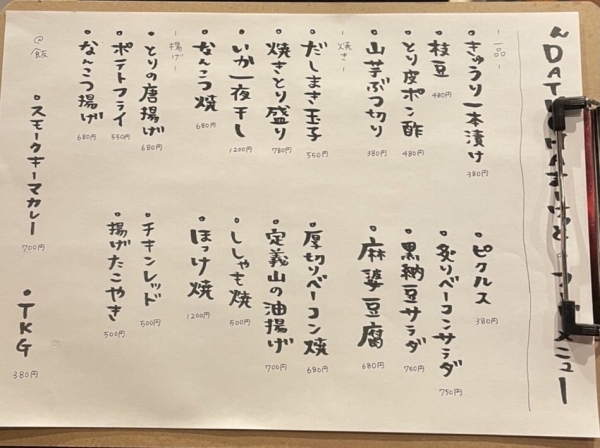 DATE
メニュー
-一品-
・きゅうり一本漬け 380円
・枝豆 480円
・とり皮ポン酢 480円
・山芋ぶつ切り 380円
・ピクルス 380円
・炙りベーコンサラダ 750円
・黒納豆サラダ 750円
・麻婆豆腐 680円
-焼き-
・だしまき玉子 550円
・焼きとり盛り 780円
・いか一夜干し 1200円
・なんこつ焼 680円
・厚切りベーコン焼 680円
・定義山の油揚げ 700円
・ししゃも焼 500円
・ほっけ焼 1200円
-揚げ-
・とりの唐揚げ 680円
・ポテトフライ 550円
・なんこつ揚げ 680円
・チキンレッド 500円
・揚げたこやき 500円
@飯
・スモークキーマカレー 700円
・TKG 380円